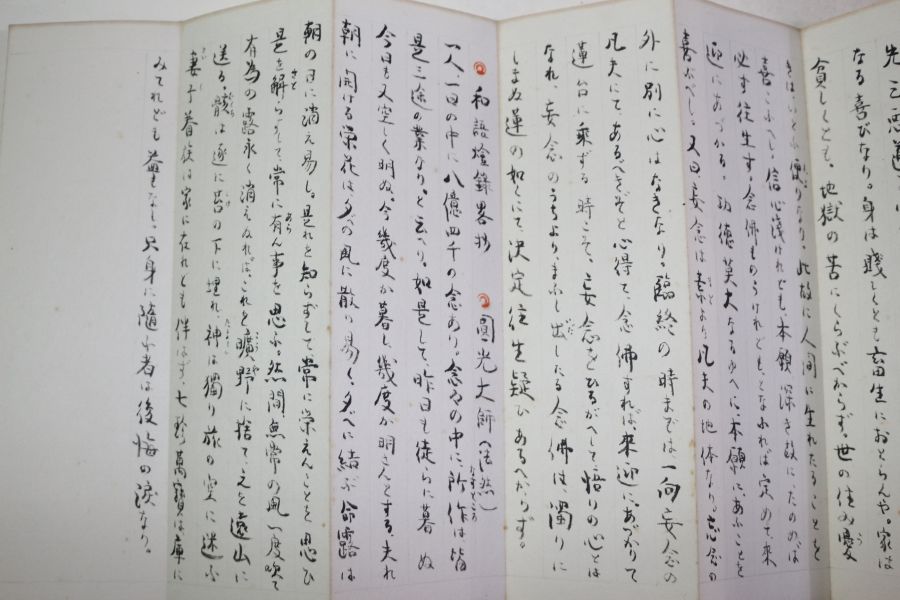 先三悪道
なる喜びなり。身は賤しくとも畜生におとらんや。家は
貧しくとも、地獄の苦にくらぶべからず。世の住み憂
きは、いとふ便りなり。此故に人間に生れたることを
喜こぶべし。信心浅けれども、本願深き故にたのめば
必ず往生す。念佛ものうけれども、となふれば定めて来
迎にあづかる。功徳莫大なるゆへに、本願にあふことを
喜ぶべし。又曰妄念は素より凡夫の地体なり。妄念の
外に別に心はなきなり。臨終の時までは一向妄念の
凡夫にてあるべきぞと心得て、念佛すれば来迎にあづかりて
蓮台に乗ずる時こそ、妄念をひるがへして悟りの心とは
なれ、妄念のうちよりまふし出したる念佛は濁りに
しまぬ蓮の如くにて決定往生疑ひあるべからず。
和語燈録畧抄 圓光大師(法然)
一人、一日の中に八億四千の念あり。念々の中に所作は皆
是三途の業なりと云へり。如是して、昨日も徒らに暮ぬ
今日も又空しく明ぬ。今幾度か暮し幾度か明さんとする、夫れ
朝に開ける栄花は夕べの風に散り易く、夕べに結ぶ命露は
朝の日に消え易し。是れを知らずして常に栄えんことを思ひ
是を解らずして、常に有ん事を思ふ。然間無常の風一度吹て
有為の露永く消えぬれば、これを曠野に捨てこれを遠山に
送る。骸は遂に苔の下に埋れ、神は獨り旅の空に迷ふ
妻子眷族は家に在れども伴はず、七珍萬寶は庫に
みてれども益もなし。只身に隨ふ者は後悔の涙なり。